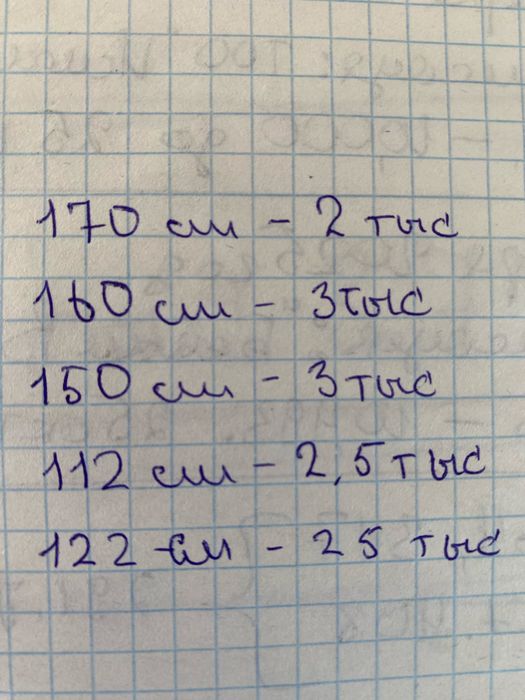 170 см - 2 тыс
160 см - 3 тыс
150 см - 3 тыс
112 см - 2,5 тыс
122 см - 25 тыс